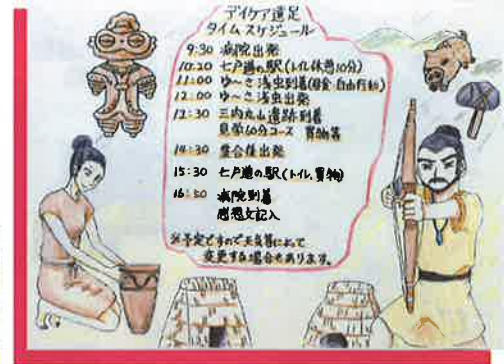 デイケア遠足
タイムスケジュール
9:30 病院出発
10:20 七戸道の駅(トイレ休憩10分)
11:00 ゆ〜さ浅虫到着(昼食・自由行動)
12:00 ゆ〜さ浅虫出発
12:30 三内丸山遺跡到着
見学60分コース 買物等
14:30 整合後出発
15:30 七戸道の駅(トイレ、買物)
16:50 病院到着
感想文記入
※予定ですので天気等によって
変更する場合もあります。